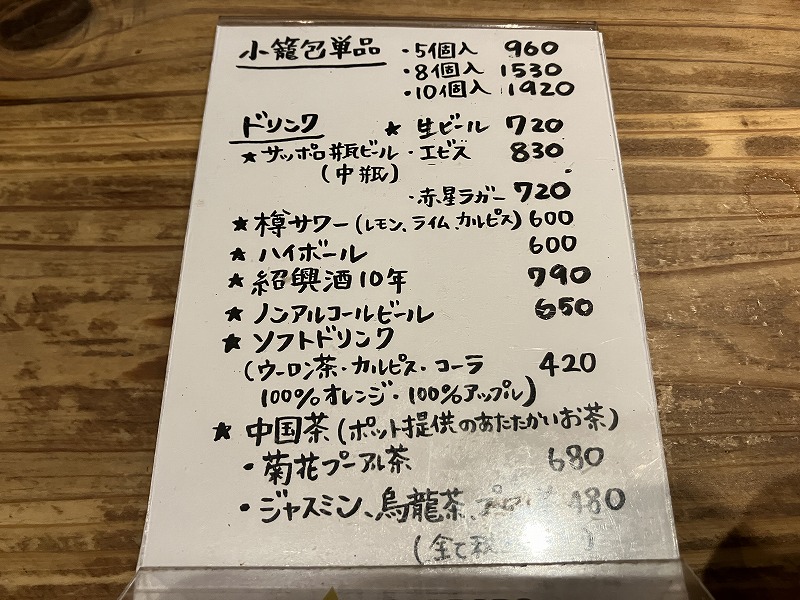 小籠包単品 ・5個入 960
・8個入 1530
・10個入 1920
ドリンク ★ 生ビール 720
★ サッポロ瓶ビール ・エビス 830
(中瓶)
・赤星ラガー 720
★ 樽サワー(レモン、ライム、カルピス) 600
★ ハイボール 600
★ 紹興酒10年 790
★ ノンアルコールビール 650
★ ソフトドリンク
(ウーロン茶・カルピス・コーラ 420
100%オレンジ・100%アップル)
★ 中国茶(ポット提供のあたたかいお茶)
・菊花プーアル茶 680
・ジャスミン、烏龍茶、 480
(全て